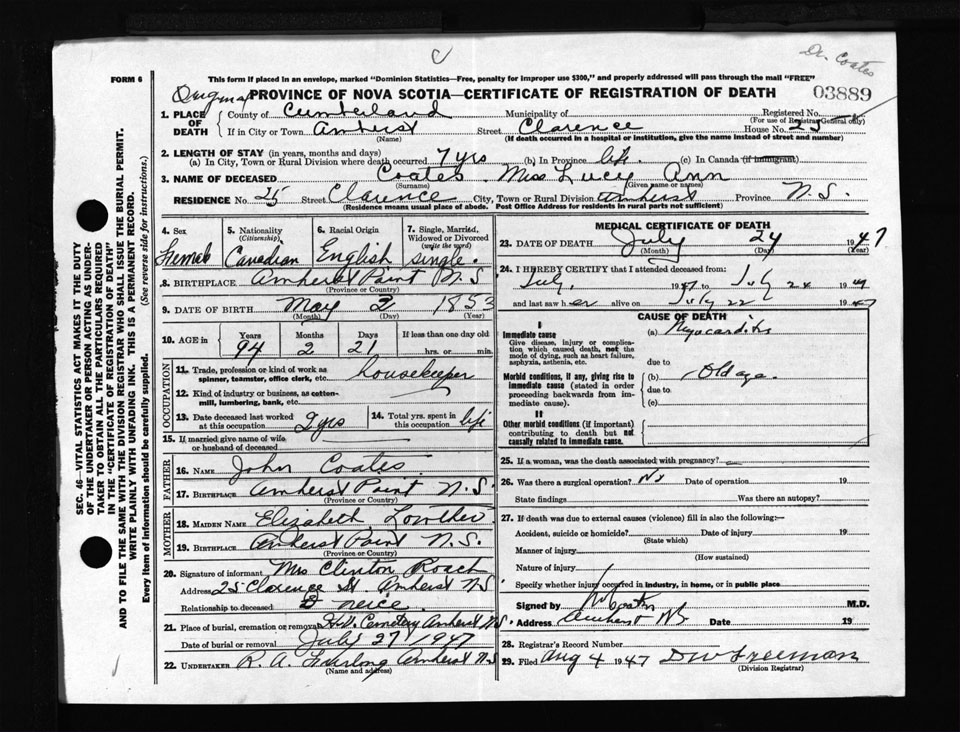 C
Dr. Coates
FORM 6
This form if placed in an envelope, marked "Dominion Statistics—Free, penalty for improper use $300," and properly addressed will pass through the mail "FREE"
PROVINCE OF NOVA SCOTIA—CERTIFICATE OF REGISTRATION OF DEATH 03889
1. PLACE OF DEATH
County of Cumberland Municipality of Registered No.
(For use of Registrar General only)
If in City or Town Amherst Street Clarence House No. 25
(Name) (If death occurred in a hospital or institution, give the name instead of street and number)
2. LENGTH OF STAY (in years, months and days)
(a) In City, Town or Rural Division where death occurred 7 yrs (b) In Province life (c) In Canada (if immigrant)
3. NAME OF DECEASED Coates Miss Lucy Ann
(Surname) (Given name or names)
RESIDENCE No. 25 Street Clarence City, Town or Rural Division Amherst Province N.S.
(Residence means usual place of abode. Post Office Address for residents in rural parts not sufficient)
4. Sex Female
5. Nationality (Citizenship) Canadian
6. Racial Origin English
7. Single, Married, Widowed or Divorced (write the word) Single
8. BIRTHPLACE Amherst Point N.S
(Province or Country)
9. DATE OF BIRTH May 2 1853
(Month) (Day) (Year)
10. AGE in Years 94 Months 2 Days 21 If less than one day old
hrs. or min.
OCCUPATION
11. Trade, profession or kind of work as spinner, teamster, office clerk, etc. Housekeeper
12. Kind of industry or business, as cotton-mill, lumbering, bank, etc.
13. Date deceased last worked at this occupation 2 yrs
14. Total yrs. spent in this occupation life
15. If married give name of wife or husband of deceased
FATHER
16. NAME John Coates
17. BIRTHPLACE Amherst Point N.S.
(Province or Country)
MOTHER
18. MAIDEN NAME Elizabeth Lowther
19. BIRTHPLACE Amherst Point N.S.
(Province or Country)
20. Signature of informant Mrs Clinton Roach
Address 25 Clarence St Amherst NS
Relationship to deceased neice
21. Place of burial, cremation or removal Cemetery Amherst N.S.
Date of burial or removal July 27 1947
22. UNDERTAKER R. A. Furlong Amherst N.S
(Name and address)
MEDICAL CERTIFICATE OF DEATH
23. DATE OF DEATH July 24 1947
(Month) (Day) (Year)
24. I HEREBY CERTIFY that I attended deceased from:
July, 1947 to July 24 1947
and last saw her alive on July 22 1947
CAUSE OF DEATH
I
Immediate cause (a) Myocarditis
Give disease, injury or complication which caused death, not the mode of dying, such as heart failure, asphyxia, asthenia, etc.
due to
Morbid conditions, if any, giving rise to immediate cause (stated in order proceeding backwards from immediate cause). (b) Old age.
due to
(c)
II
Other morbid conditions (if important) contributing to death but not causally related to immediate cause.
25. If a woman, was the death associated with pregnancy?
26. Was there a surgical operation? No Date of operation 19
State findings Was there an autopsy?
27. If death was due to external causes (violence) fill in also the following:—
Accident, suicide or homicide? Date of injury 19
(State which)
Manner of injury
(How sustained)
Nature of injury
Specify whether injury occurred in industry, in home, or in public place
Signed by Coates M.D.
Address Amherst NS Date 19
28. Registrar's Record Number
29. Filed Aug 4 1947 D W Freeman
(Division Registrar)
SEC. 46—VITAL STATISTICS ACT MAKES IT THE DUTY
OF THE UNDERTAKER OR PERSON ACTING AS UNDERTAKER TO OBTAIN ALL THE PARTICULARS REQUIRED
IN THE "CERTIFICATE OF REGISTRATION OF DEATH"
AND TO FILE THE SAME WITH THE DIVISION REGISTRAR WHO SHALL ISSUE THE BURIAL PERMIT.
WRITE PLAINLY WITH UNFADING INK. THIS IS A PERMANENT RECORD.
Every item of information should be carefully supplied. (See reverse side for instructions.)